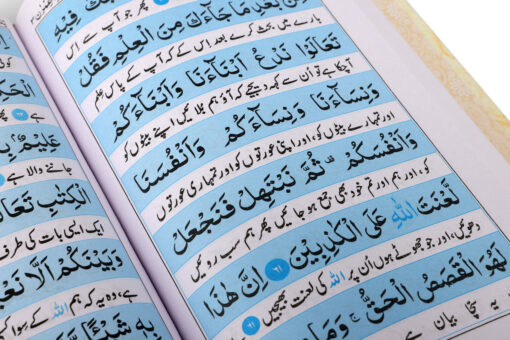 فِيْهِ
پھر جو آپ سے اس
مِنْۢ بَعْدِ مَا جَآءَكَ مِنَ الْعِلْمِ فَقُلْ
بارے میں بحث کرے بعد اس کے کہ آپ کے پاس علم
تَعَالَوْا نَدْعُ اَبْنَآءَنَا وَاَبْنَآءَكُمْ
آچکا ہے تو ان سے کہہ دیجئے کہ آؤ ہم بلائیں اپنے بیٹوں کو
وَنِسَآءَنَا وَنِسَآءَكُمْ وَاَنْفُسَنَا
اور تمہارے بیٹوں کو، اور اپنی عورتوں کو اور تمہاری عورتوں
وَاَنْفُسَكُمْ ۟ ثُمَّ نَبْتَهِلْ فَنَجْعَلْ
کو، اور ہم اور تم خود بھی جمع ہو جائیں پھر ہم سب روئیں
لَّعْنَتَ اللّٰهِ عَلَى الْكٰذِبِيْنَ ۶۱ اِنَّ هٰذَا
دھوئیں، اور جو جھوٹے ہوں ان پر اللہ کی لعنت بھیجیں ۶۱
لَهُوَ الْقَصَصُ الْحَقُّ ۚ وَمَا
یہ سچا بیان ہے
ہے
عَلِيْمٌۢ
جاننے والا ہے
الْكِتٰبِ تَعَالَ
ایک ایسی بات کی طرف
وَبَيْنَكُمْ اَلَّا نَعْ
ہے، وہ یہ کہ ہم اللہ کے سوا
بِهٖ شَيْـًٔا